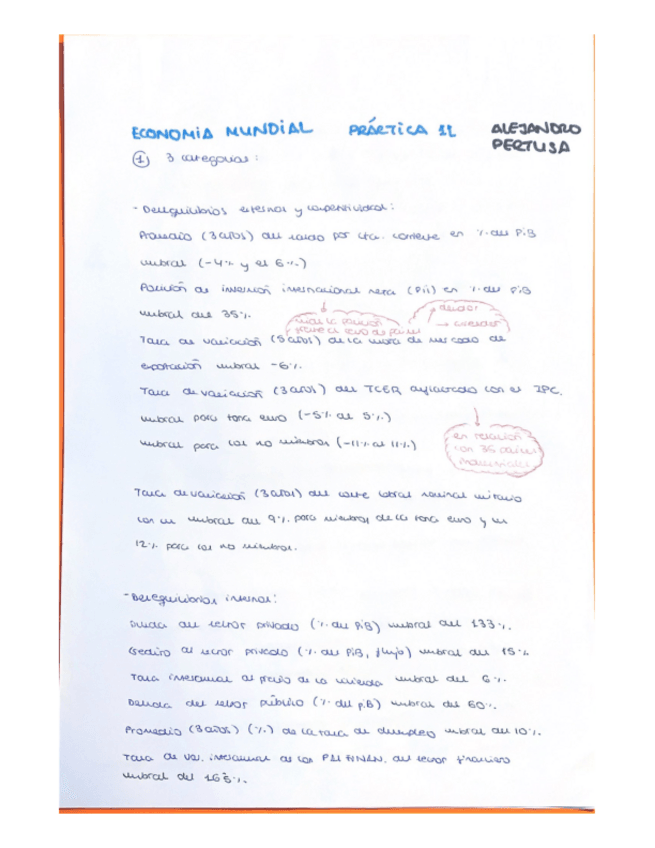 ECONOMIA MUNDIAL PRÁCTICA 11 ALEJANDRO PERTUSA
① 3 categorias:
- Desequilibrios externos y competitividad:
Promedio (3 años) del saldo por cta. corriente en % del PIB
umbral (-4% y el 6%)
Posición de inversión internacional neta (PII) en % del PIB
umbral del 35%.
mide la posición
frente al resto de países
deudor
→ acreedor
Tasa de variación (5 años) de la cuota de mercado de
exportación umbral -6%.
Tasa de variación (3 años) del TCER, deflactado con el IPC.
umbral para zona euro (-5% al 5%)
umbral para los no miembros (-11% al 11%)
en relación
con 35 países
industriales
Tasa de variación (3 años) del coste laboral nominal unitario
con un umbral del 9% para miembros de la zona euro y un
12% para los no miembros.
- Desequilibrios internos:
Deuda del sector privado (% del PIB) umbral del 133%.
Crédito al sector privado (% del PIB, flujo) umbral del 15%
Tasa interanual al precio de la vivienda umbral del 6%.
Deuda del sector público (% del PIB) umbral del 60%.
Promedio (3 años) (%) de la tasa de desempleo umbral del 10%.
Tasa de var. interanual de los PAS FINAN. del sector financiero
umbral del